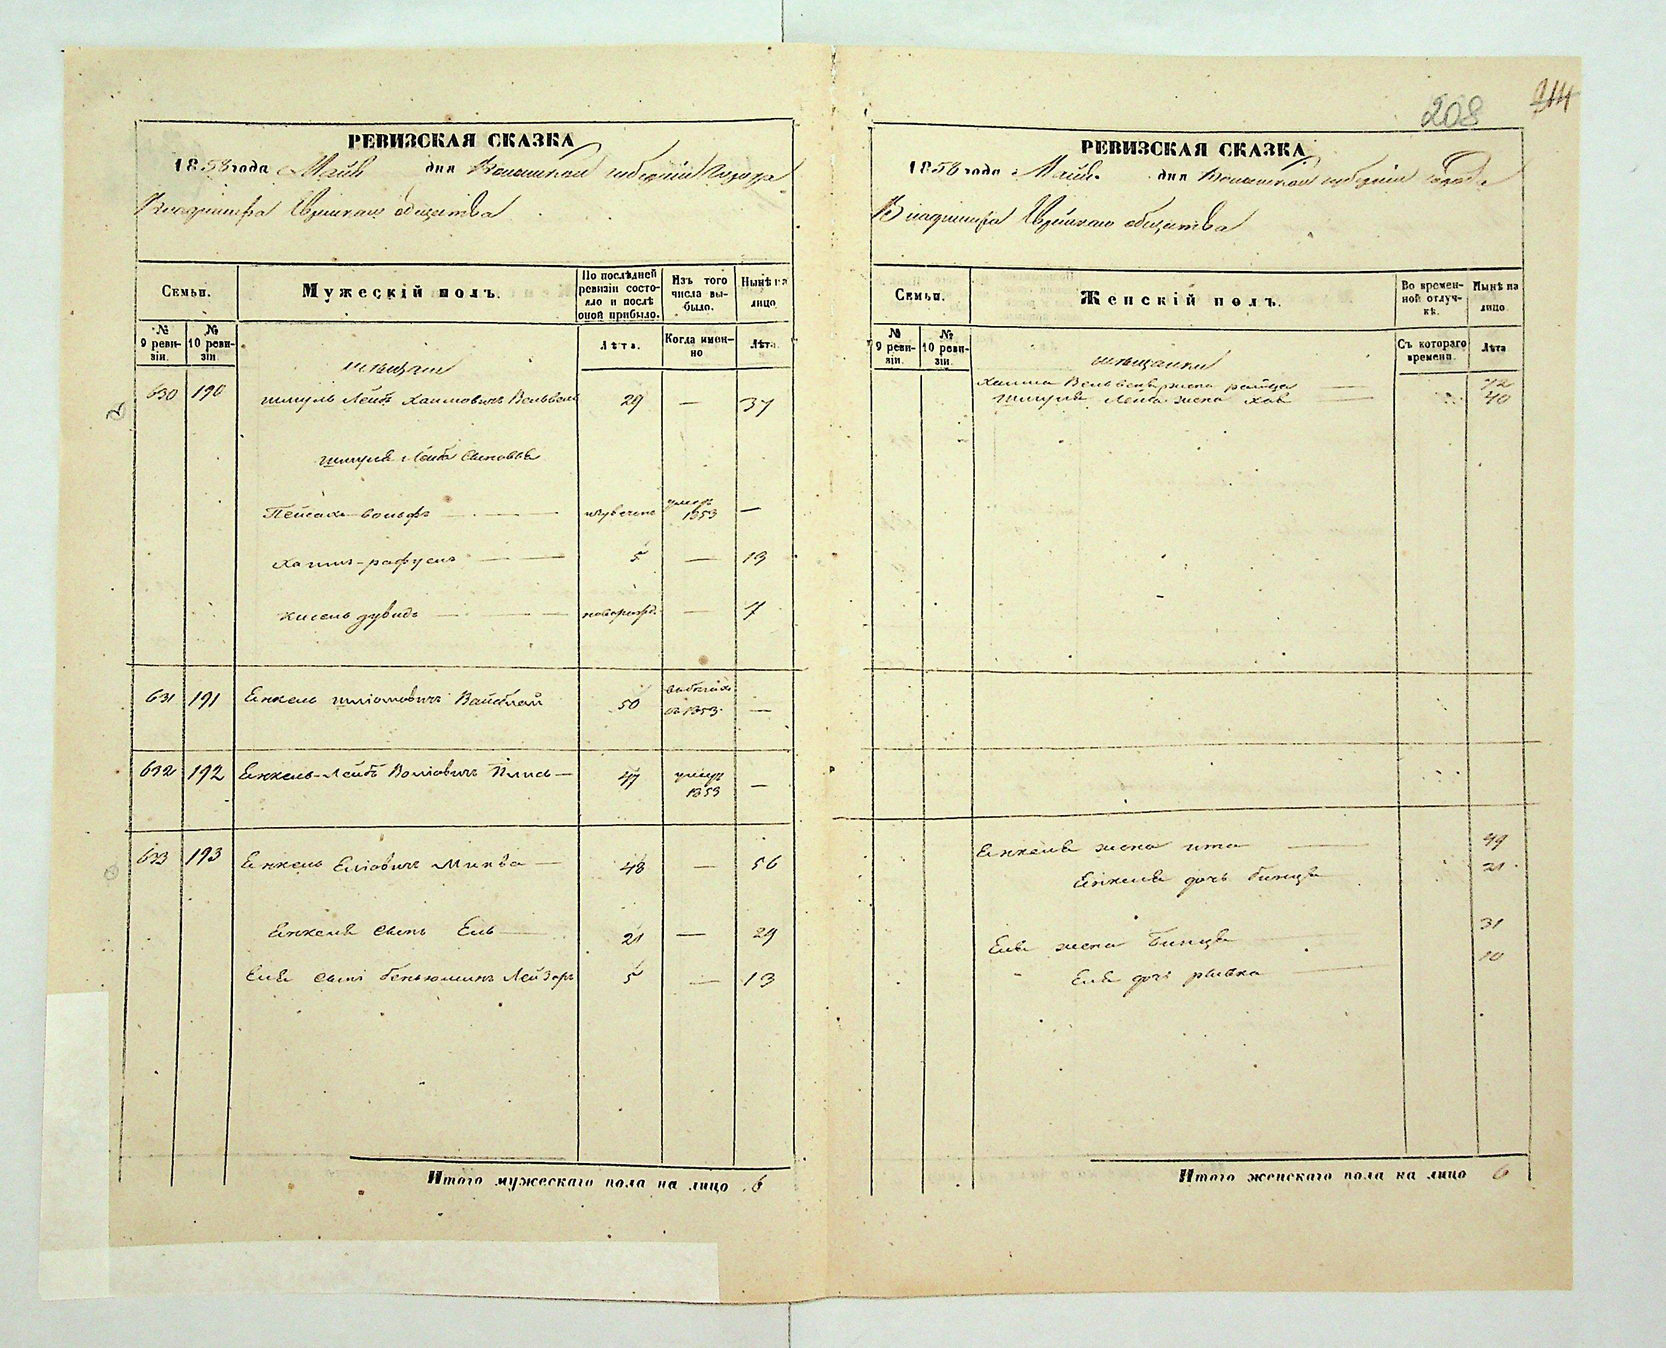 208
214
РЕВИЗСКАЯ СКАЗКА
1858 года Майя дня Волынской губерніи города
Владиміра Еврейскаго общества
Семьи.
Мужескій полъ.
По послѣдней ревизіи состояло и послѣ оной прибыло.
Изъ того числа выбыло.
Нынѣ на лицо.
№ 9 ревизіи.
№ 10 ревизіи
Лѣта.
Когда именно
Лѣта.
мѣщане
630 190 Шмуль Лейба Хаимовичъ 29 — 37
Шмуля Лейбы сыновья
Пейсахъ Вольфъ умеръ 1853 —
Хаимъ-рафуелъ 5 — 13
Кисель дувидъ новорожд. — 7
631 191 Енкель Шліомовичъ 50 1853 —
632 192 Енкель-Лейба 47 умеръ 1853 —
633 193 Енкель Еліовичъ Миква — 48 — 56
Енкеля сынъ Ель 21 — 29
Еля сынъ беньюминъ Лейзоръ 5 — 13
Итого мужескаго пола на лицо 6
РЕВИЗСКАЯ СКАЗКА
1858 года Майя дня Волынской губерніи города
Владиміра Еврейскаго общества
Семьи.
Женскій полъ.
Во временной отлучкѣ.
Нынѣ на лицо
№ 9 ревизіи.
№ 10 ревизіи.
Съ котораго времени.
Лѣта
мѣщанки
Хаима жена 72
Шмуля Лейбы жена Хая 40
Енкеля жена ита 49
Енкеля дочь бинця 21
Еля жена Бинця 31
Еля дочь рывка 10
Итого женскаго пола на лицо 6